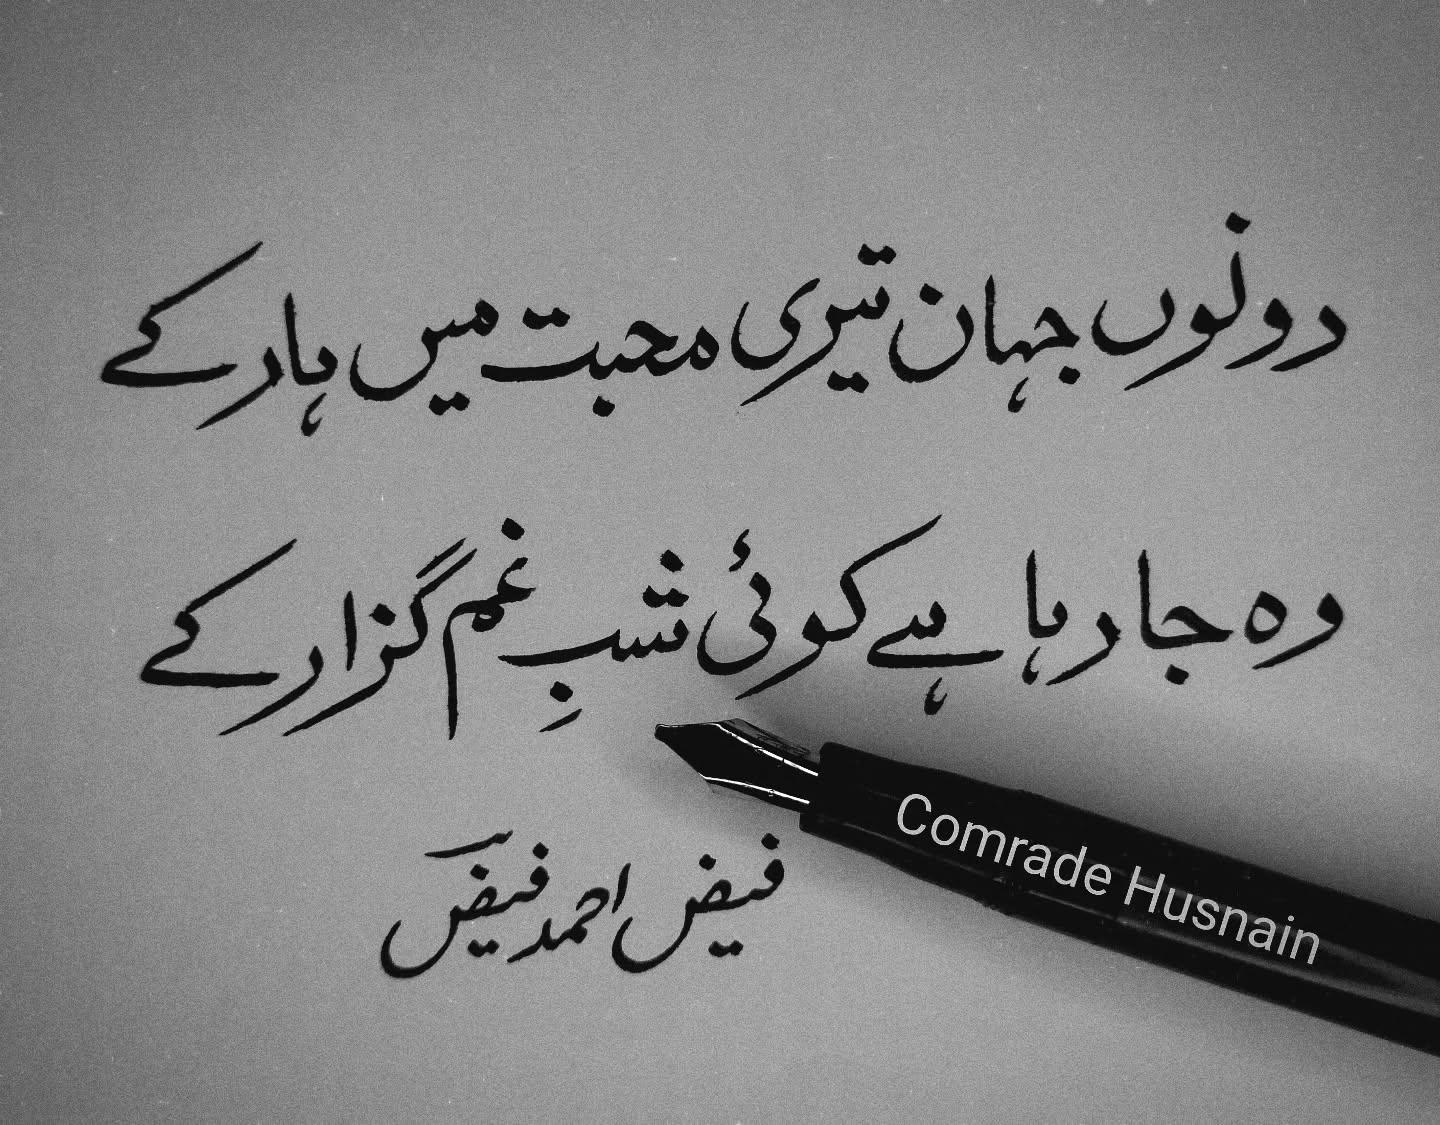 دونوں جہان تیری محبت میں ہار کے
وہ جا رہا ہے کوئی شبِ غم گزار کے
فیض احمد فیضؔ
Comrade Husnain